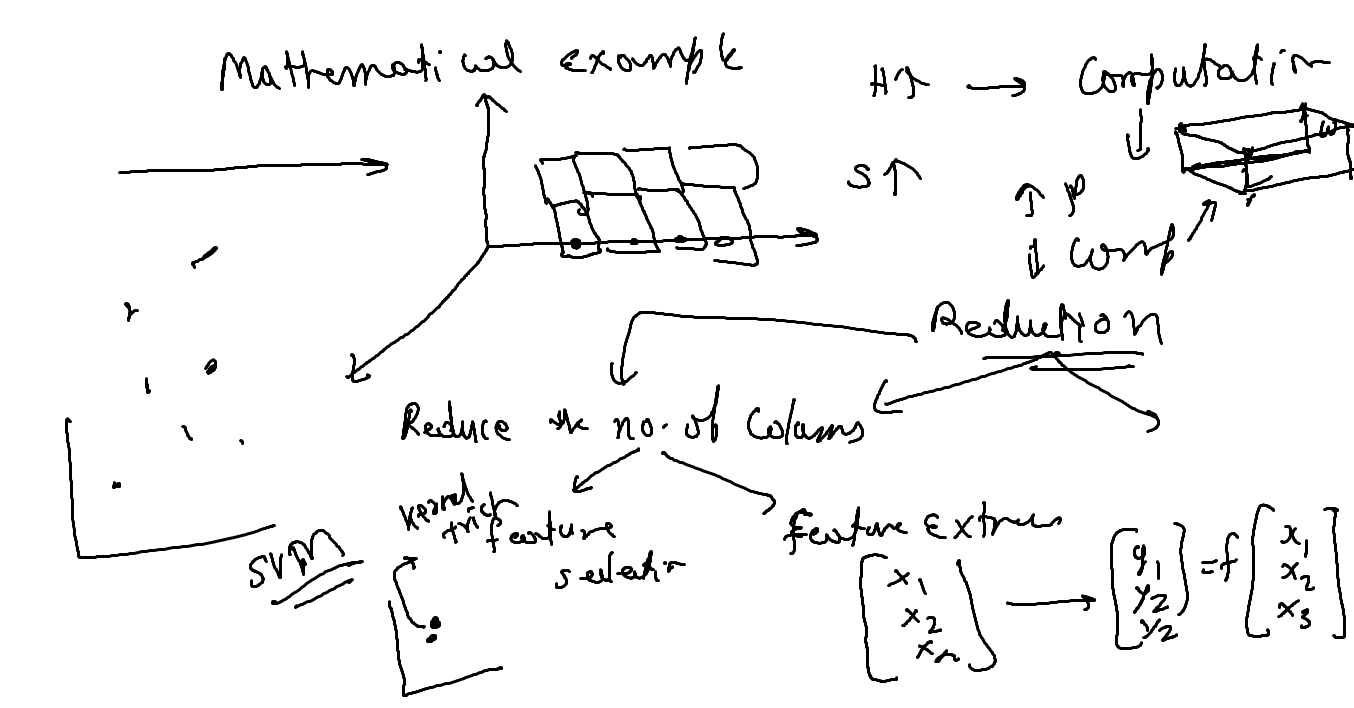 Mathematical example
H↑ → Computation
S↑
↑ P
↓ Comp
W
Reduction
Reduce the no. of Colums
Kernal
trick
feature
selectin
SVM
feature Extrac
[x1
x2
xn]
→
[y1
y2
y2] = f [x1
x2
x3]